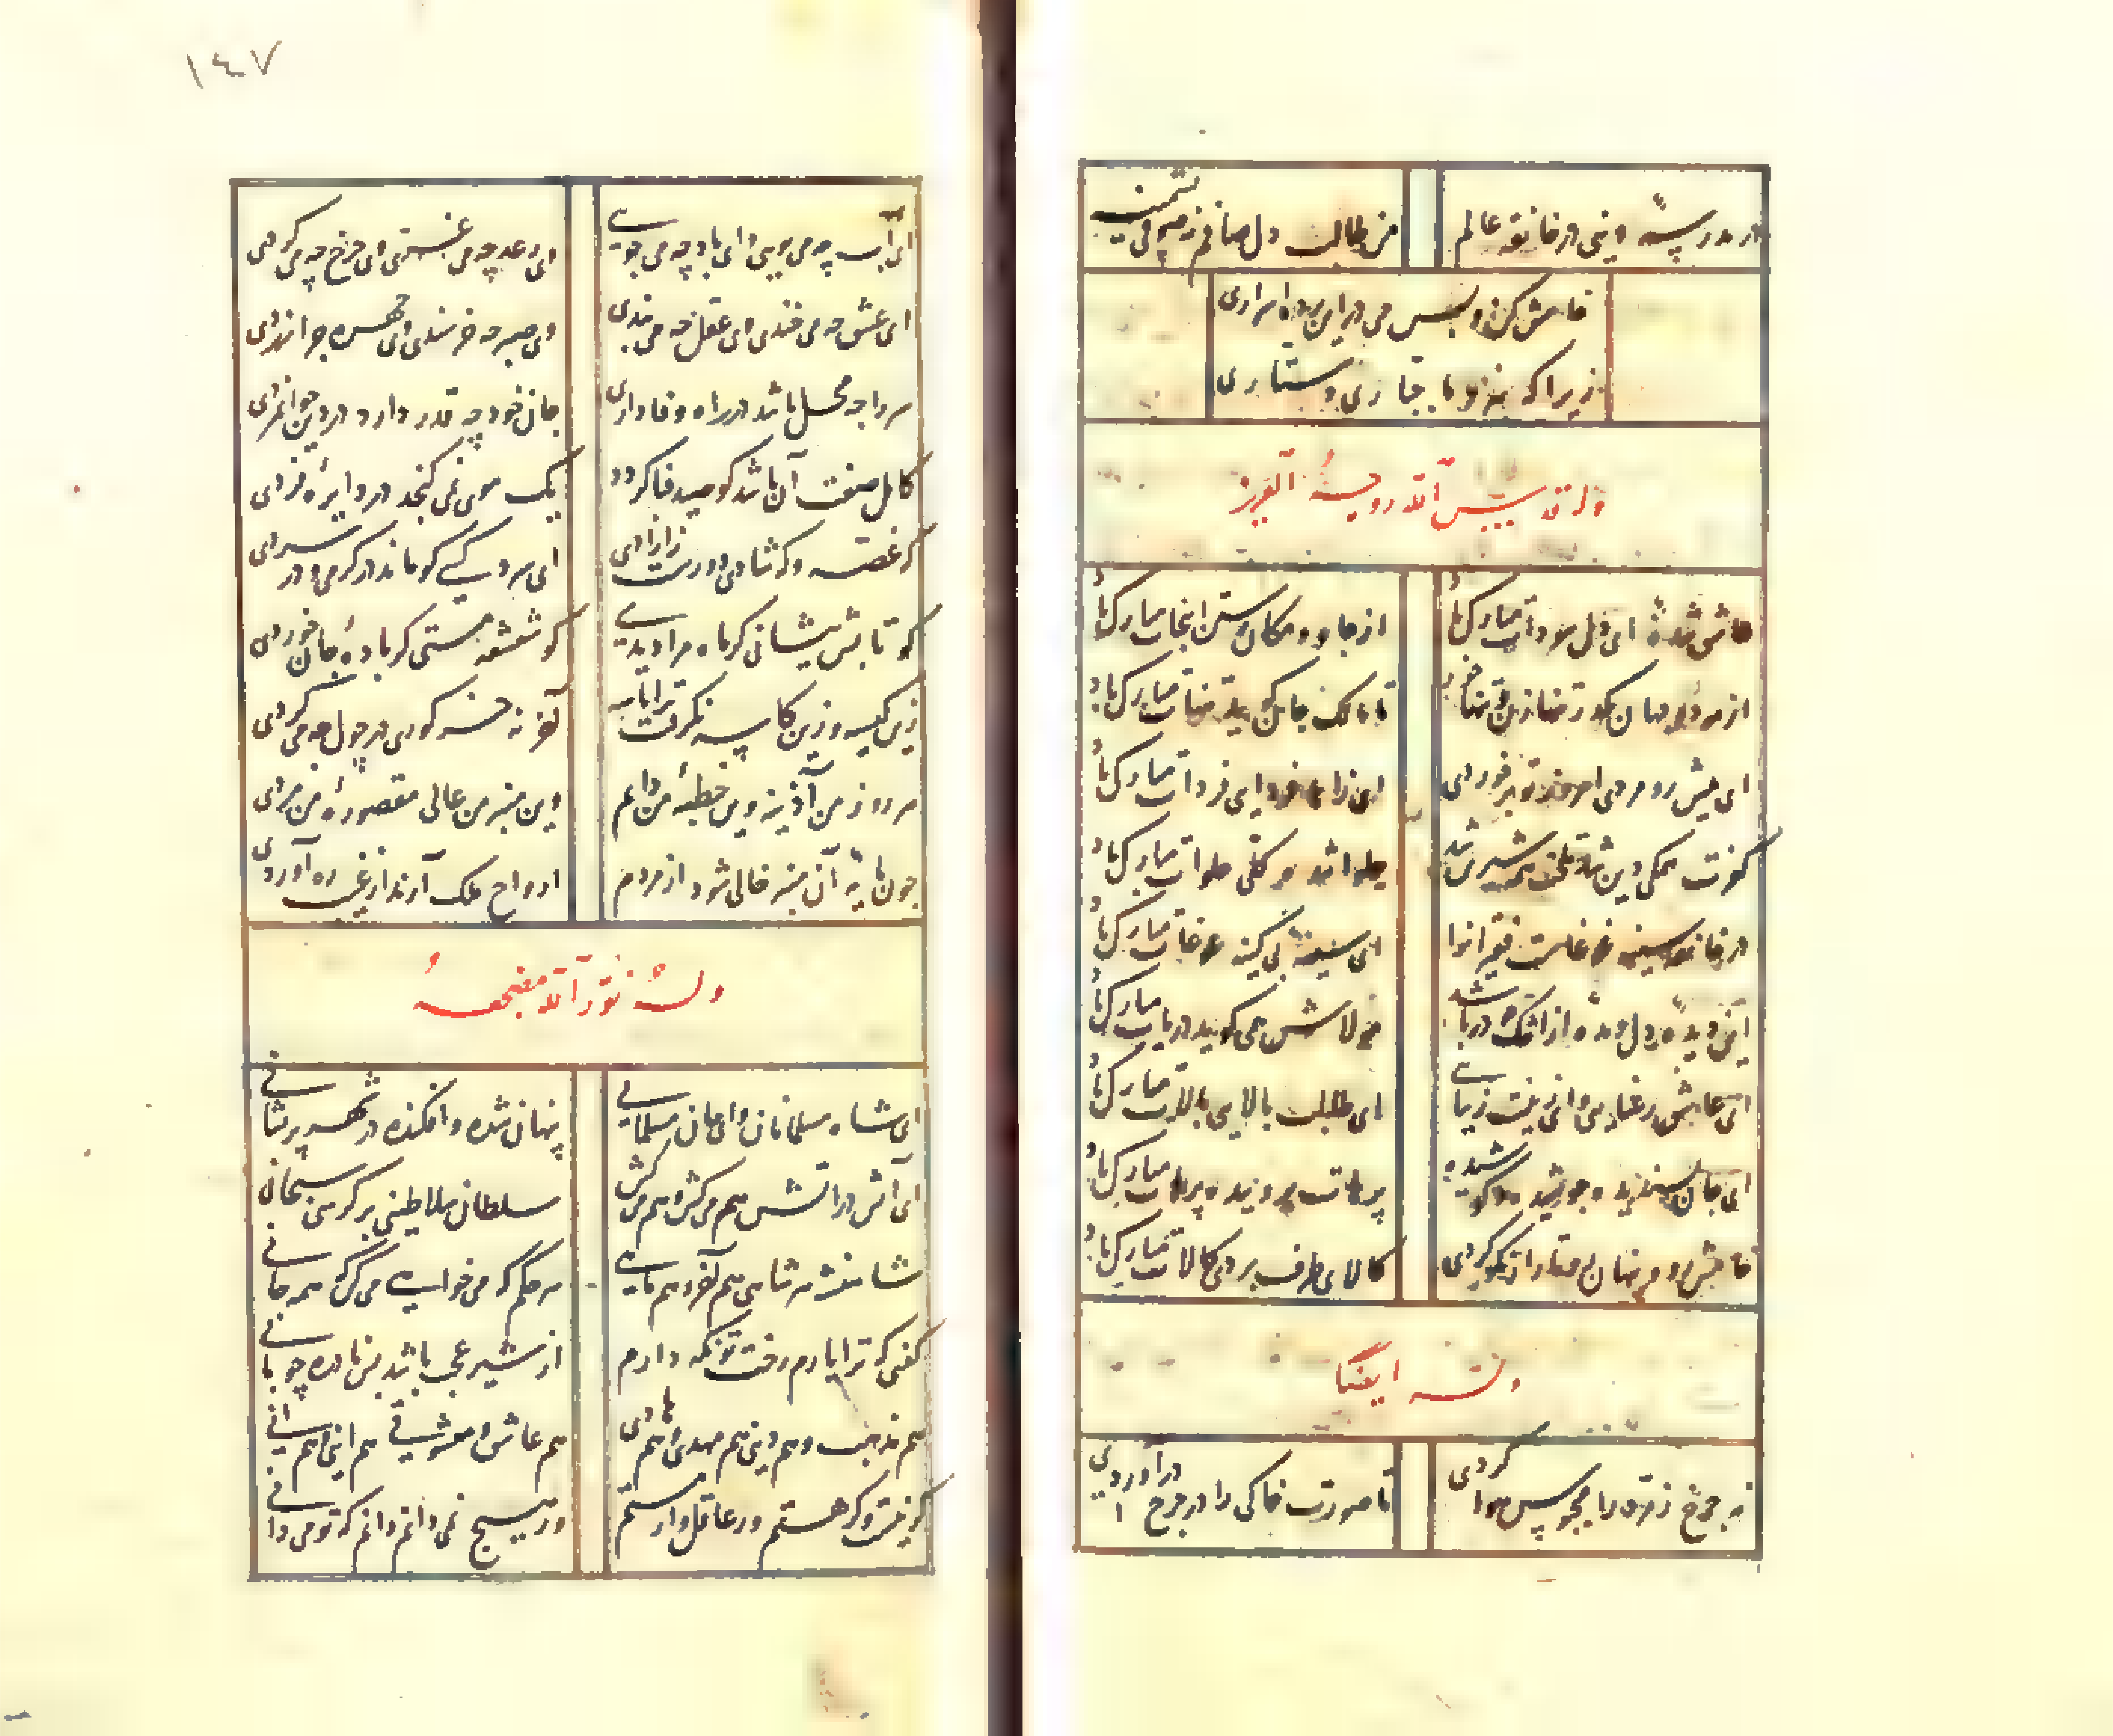 در مدرسهٔ دینی در خانقه عالم
من طالب دل صافم نه صوفی پشمینه
خامش کن و بس می در این پرده اسراری
زیرا که بنزد ما جباری و ستاری
وله قدس الله روحه العزیز
عاشق شدهٔ ای دل سودات مبارک باد
از جا و مکان رستی اینجات مبارک باد
از هر دو جهان بگذر تنها زن و تنها خور
تا مالک جان گوید تنهات مبارک باد
ای پیش رو مردی امروز تو برخوردی
ای زاهد فردایی فردات مبارک باد
کفرت همگی دین شد تلخت همه شیرین شد
حلوا شد و کلی حلوات مبارک باد
در خانقه سینه غوغاست فقیرانرا
ای سینهٔ بی کینه غوغات مبارک باد
این دیدهٔ دل دیده از اشک دریا شد
دریاش همی گوید دریات مبارک باد
ای عاشق
ای طالب بالایی بالات مبارک باد
ای جان پسندیده جوشیده و کوشیده
پرهات بروییده پرهات مبارک باد
خامش کن و پنهان کن بازار نکو کردی
کالای طرف بردی کالات مبارک باد
وله ایضا
نه چرخ زمرد را محبوس هوا کردی
تا صورت خاکی را در چرخ درآوردی
١٤٧
ای آب چه می شویی وای باد چه می جویی
ای رعد چه می غری وی چرخ چه می گردی
ای عشق چه می خندی وی عقل چه می بندی
وی صبر چه خرسندی وی چهره چرا زردی
سر را چه محل باشد در راه وفاداری
جان خود چه قدر دارد در دین جوانمردی
کامل صفت آن باشد کو صید فنا گردد
یک موی نمی گنجد در دایرهٔ فردی
گه غصه و گه شادی دورست ز آزادی
ای سرد کسی کو ماند در گرمی و در سردی
کو تابش پیشانی گر ماه مرا دیدی
کو شعشهٔ مستی گر بادهٔ جان خوردی
زین کیسه و زین کاسه نگرفت ترا تاسه
آخر نه خر کوری در چول چه می گردی
هر روز من آذینه وین خطبهٔ من دایم
وین منبر من عالی مقصورهٔ من مردی
چون پایهٔ آن منبر خالی شود از مردم
ارواح ملک آرند از غیب ره آوردی
وله نور الله مضجعه
ای شاه مسلمانان وای جان مسلمانی
پنهان شده و افکنده در شهر پریشانی
ای آتش در آتش هم می کش و هم می کش
سلطان سلاطینی بر کرسی سبحانی
شاهنشه هر شاهی هم اختر و هم ماهی
هر حکم که می خواهی می کن که همه جانی
گفتی که ترا یارم رخت تو نگه دارم
از شیر عجب باشد بس نادره چوپانی
هم مذهب و هم دینی هم مهدی و هم هادی
هم عاشق و معشوقی هم اینی و هم آنی
گر نیستم و گر هستم ور عاقل و ار مستم
ور هیچ نمی دانم دانم که تو می دانی